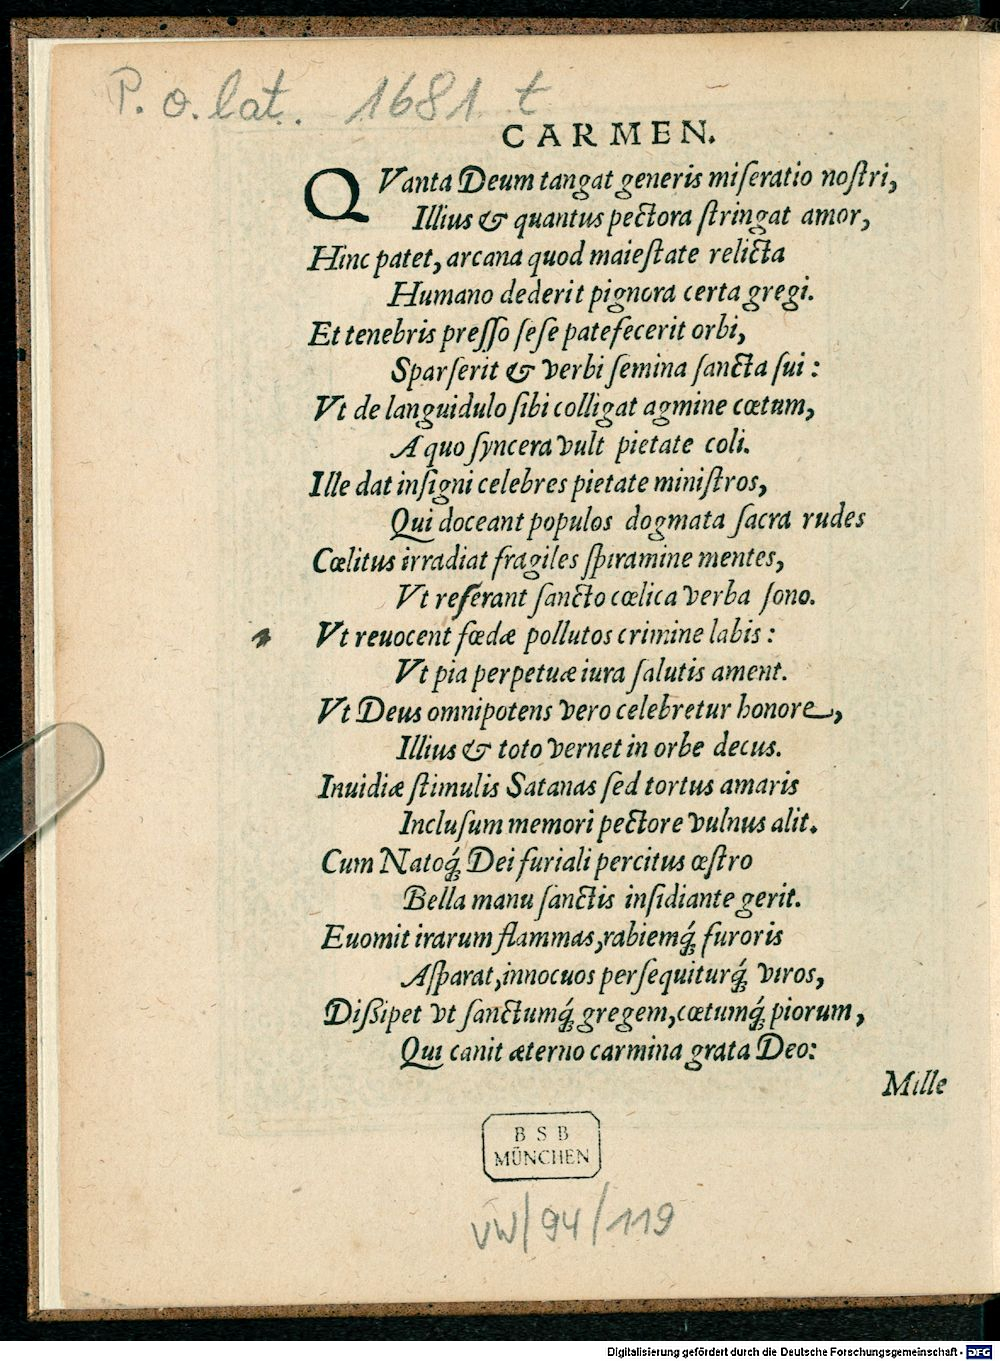 P. o. lat. 1681 t
CARMEN.
QVanta Deum tangat generis miſeratio noſtri,
Illius & quantus pectora ſtringat amor,
Hinc patet, arcana quod maieſtate relicta
Humano dederit pignora certa gregi.
Et tenebris preſſo ſeſe patefecerit orbi,
Sparſerit & verbi ſemina ſancta ſui:
Vt de languidulo ſibi colligat agmine cœtum,
A quo ſyncera vult pietate coli.
Ille dat inſigni celebres pietate miniſtros,
Qui doceant populos dogmata ſacra rudes
Cœlitus irradiat fragiles ſpiramine mentes,
Vt referant ſancto cœlica verba ſono.
Vt reuocent fœdæ pollutos crimine labis:
Vt pia perpetuæ iura ſalutis ament.
Vt Deus omnipotens vero celebretur honore,
Illius & toto vernet in orbe decus.
Inuidiæ ſtimulis Satanas ſed tortus amaris
Incluſum memori pectore vulnus alit.
Cum Natoq́; Dei furiali percitus œſtro
Bella manu ſanctis inſidiante gerit.
Euomit irarum flammas, rabiemq́; furoris
Aſparat, innocuos perſequiturq́; viros,
Diſsipet vt ſanctumq́; gregem, cœtumq́; piorum,
Qui canit æterno carmina grata Deo:
Mille
BSB
MÜNCHEN
VW/94/119
Digitalisierung gefördert durch die Deutsche Forschungsgemeinschaft - DFG